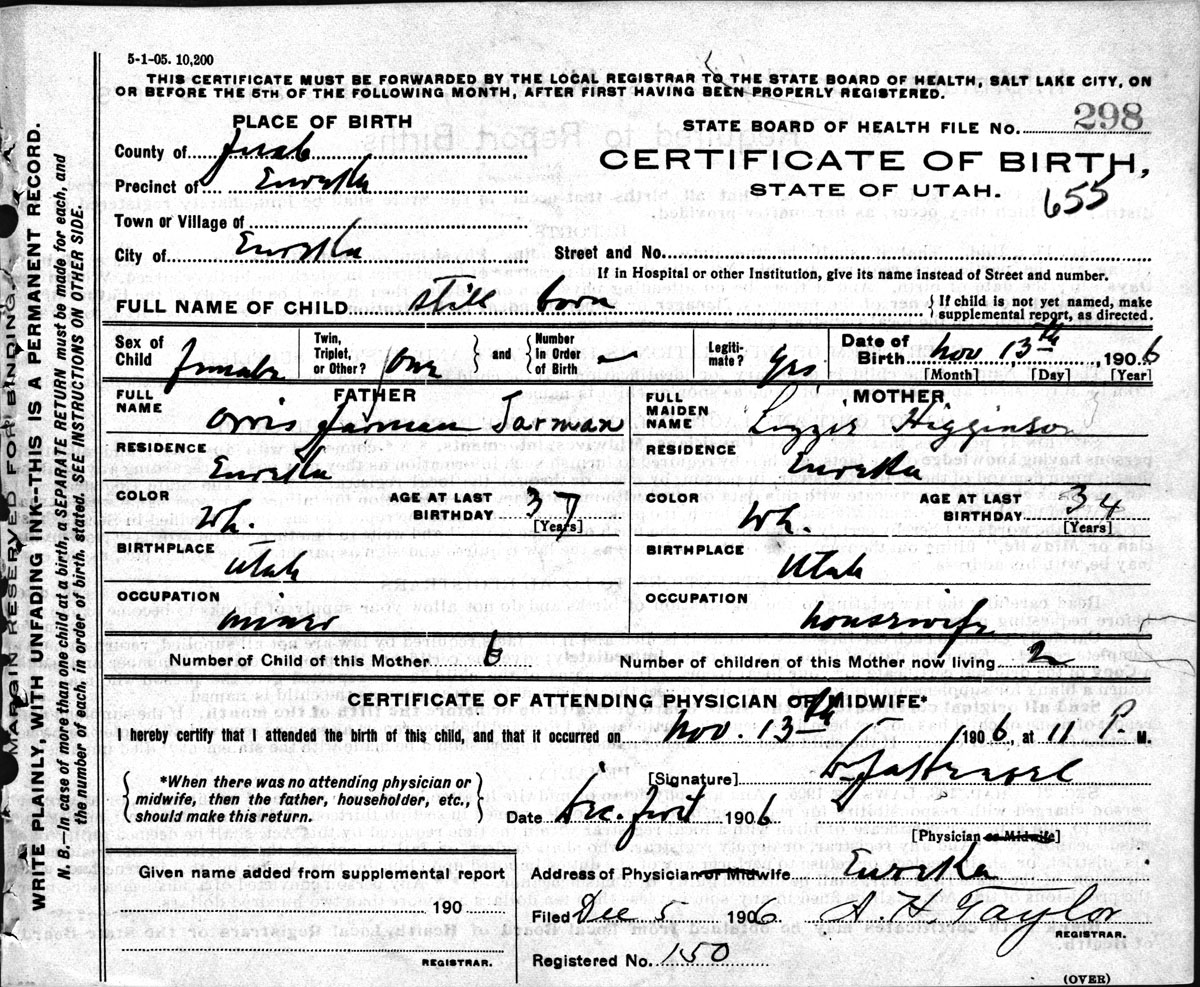 5-1-05. 10,200
THIS CERTIFICATE MUST BE FORWARDED BY THE LOCAL REGISTRAR TO THE STATE BOARD OF HEALTH, SALT LAKE CITY, ON
OR BEFORE THE 5TH OF THE FOLLOWING MONTH, AFTER FIRST HAVING BEEN PROPERLY REGISTERED.
PLACE OF BIRTH
STATE BOARD OF HEALTH FILE NO. 298
County of Juab
CERTIFICATE OF BIRTH,
Precinct of Eureka
STATE OF UTAH.
655
Town or Village of
City of Eureka
Street and No.
If in Hospital or other Institution, give its name instead of Street and number.
FULL NAME OF CHILD still born
{ If child is not yet named, make
supplemental report, as directed.
Sex of Child Female
Twin, Triplet, or Other? One } and { Number In Order of Birth
Legiti-mate? Yes
Date of Birth Nov 13th, 1906
[Month] [Day] [Year]
FATHER
FULL NAME Orris Jarman Jarman
MOTHER
FULL MAIDEN NAME Lizzie Higginson
RESIDENCE Eureka
RESIDENCE Eureka
COLOR Wh.
AGE AT LAST BIRTHDAY 37 [Years]
COLOR Wh.
AGE AT LAST BIRTHDAY 34 [Years]
BIRTHPLACE Utah
BIRTHPLACE Utah
OCCUPATION miner
OCCUPATION housewife
Number of Child of this Mother 6
Number of children of this Mother now living 2
CERTIFICATE OF ATTENDING PHYSICIAN OR MIDWIFE*
I hereby certify that I attended the birth of this child, and that it occurred on Nov. 13th 1906, at 11 P. M.
{ *When there was no attending physician or
midwife, then the father, householder, etc.,
should make this return. }
[Signature]
Date Dec. 1906
[Physician or Midwife]
Given name added from supplemental report
190
REGISTRAR.
Address of Physician or Midwife Eureka
Filed Dec 5 1906 A. H. Taylor
REGISTRAR.
Registered No. 150
(OVER)
MARGIN RESERVED FOR BINDING.
WRITE PLAINLY, WITH UNFADING INK--THIS IS A PERMANENT RECORD.
N. B.--In case of more than one child at a birth, a SEPARATE RETURN must be made for each, and
the number of each, in order of birth, stated. SEE INSTRUCTIONS ON OTHER SIDE.